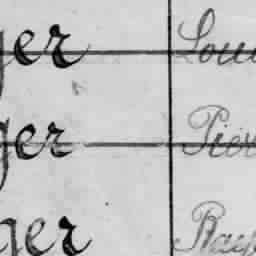 ger Loui
ger Pier
ger Ray